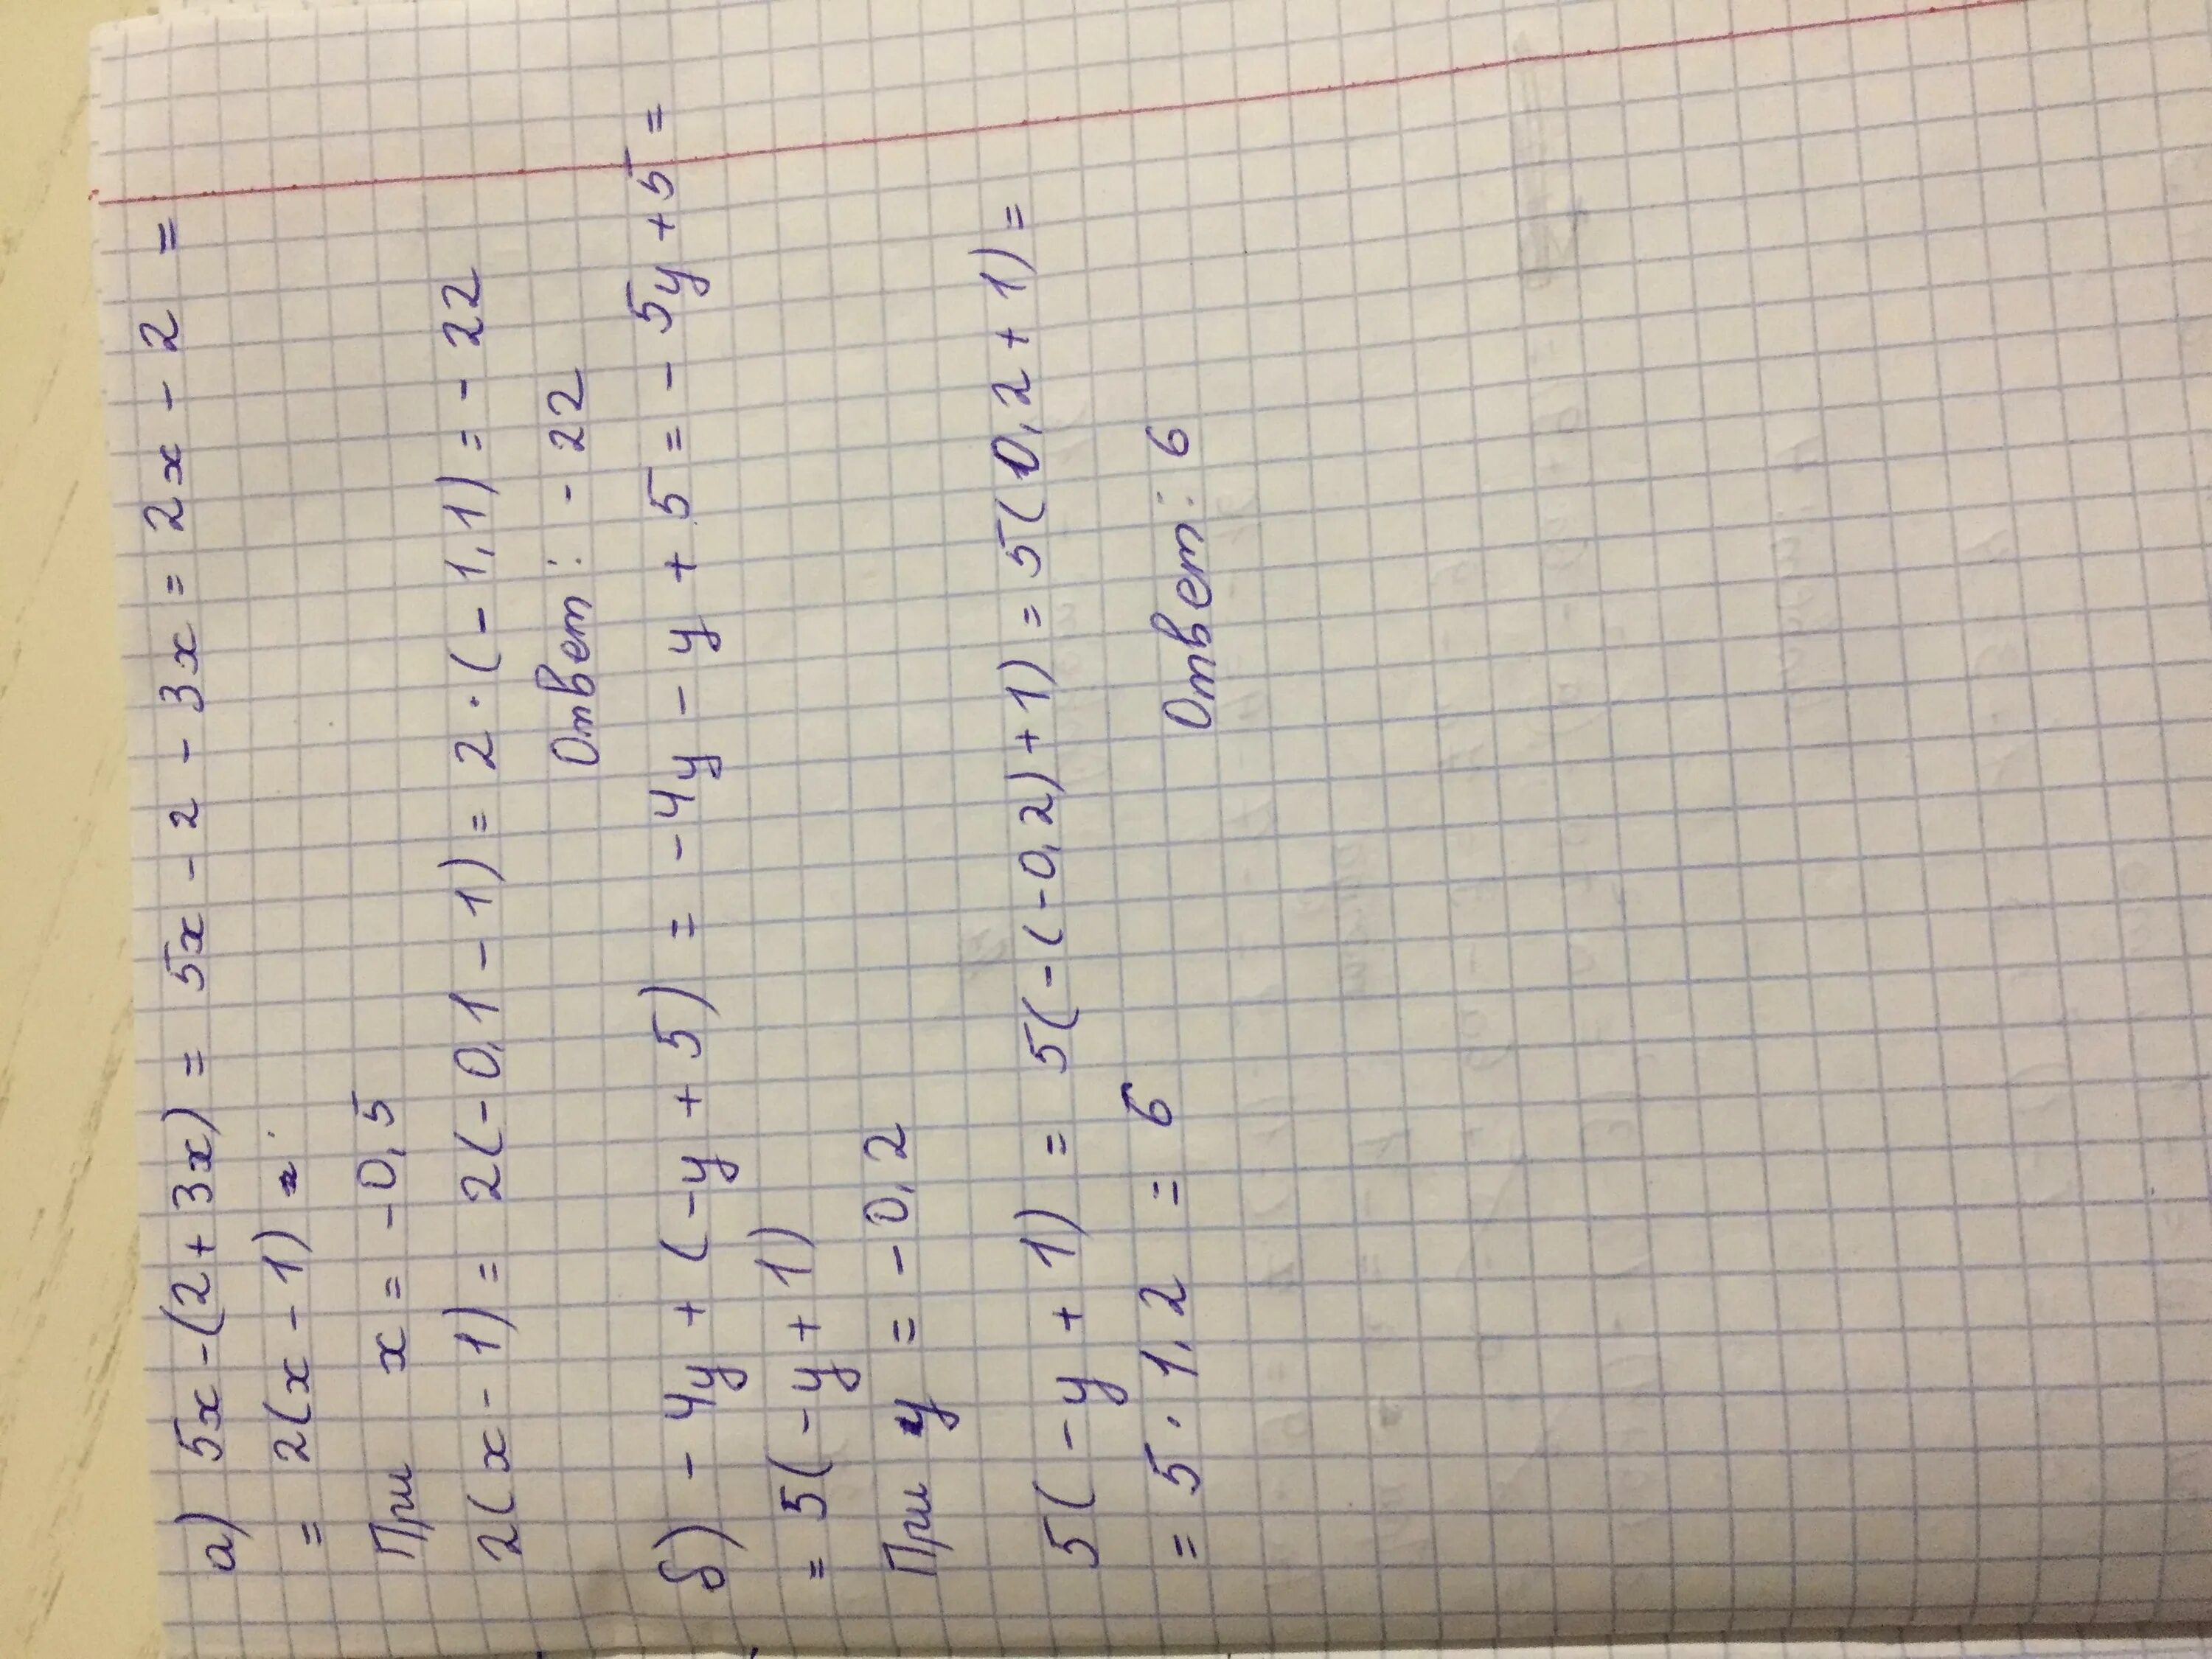 а) 5x - (2 + 3x) = 5x - 2 - 3x = 2x - 2 =
= 2(x - 1) =
При x = -0,5
2(x - 1) = 2(-0,1 - 1) = 2 · (-1,1) = -22
Ответ: -22
б) -4y + (-y + 5) = -4y - y + 5 = -5y + 5 =
= 5(-y + 1)
При y = -0,2
5(-y + 1) = 5(-(-0,2) + 1) = 5(0,2 + 1) =
= 5 · 1,2 = 6
Ответ: 6